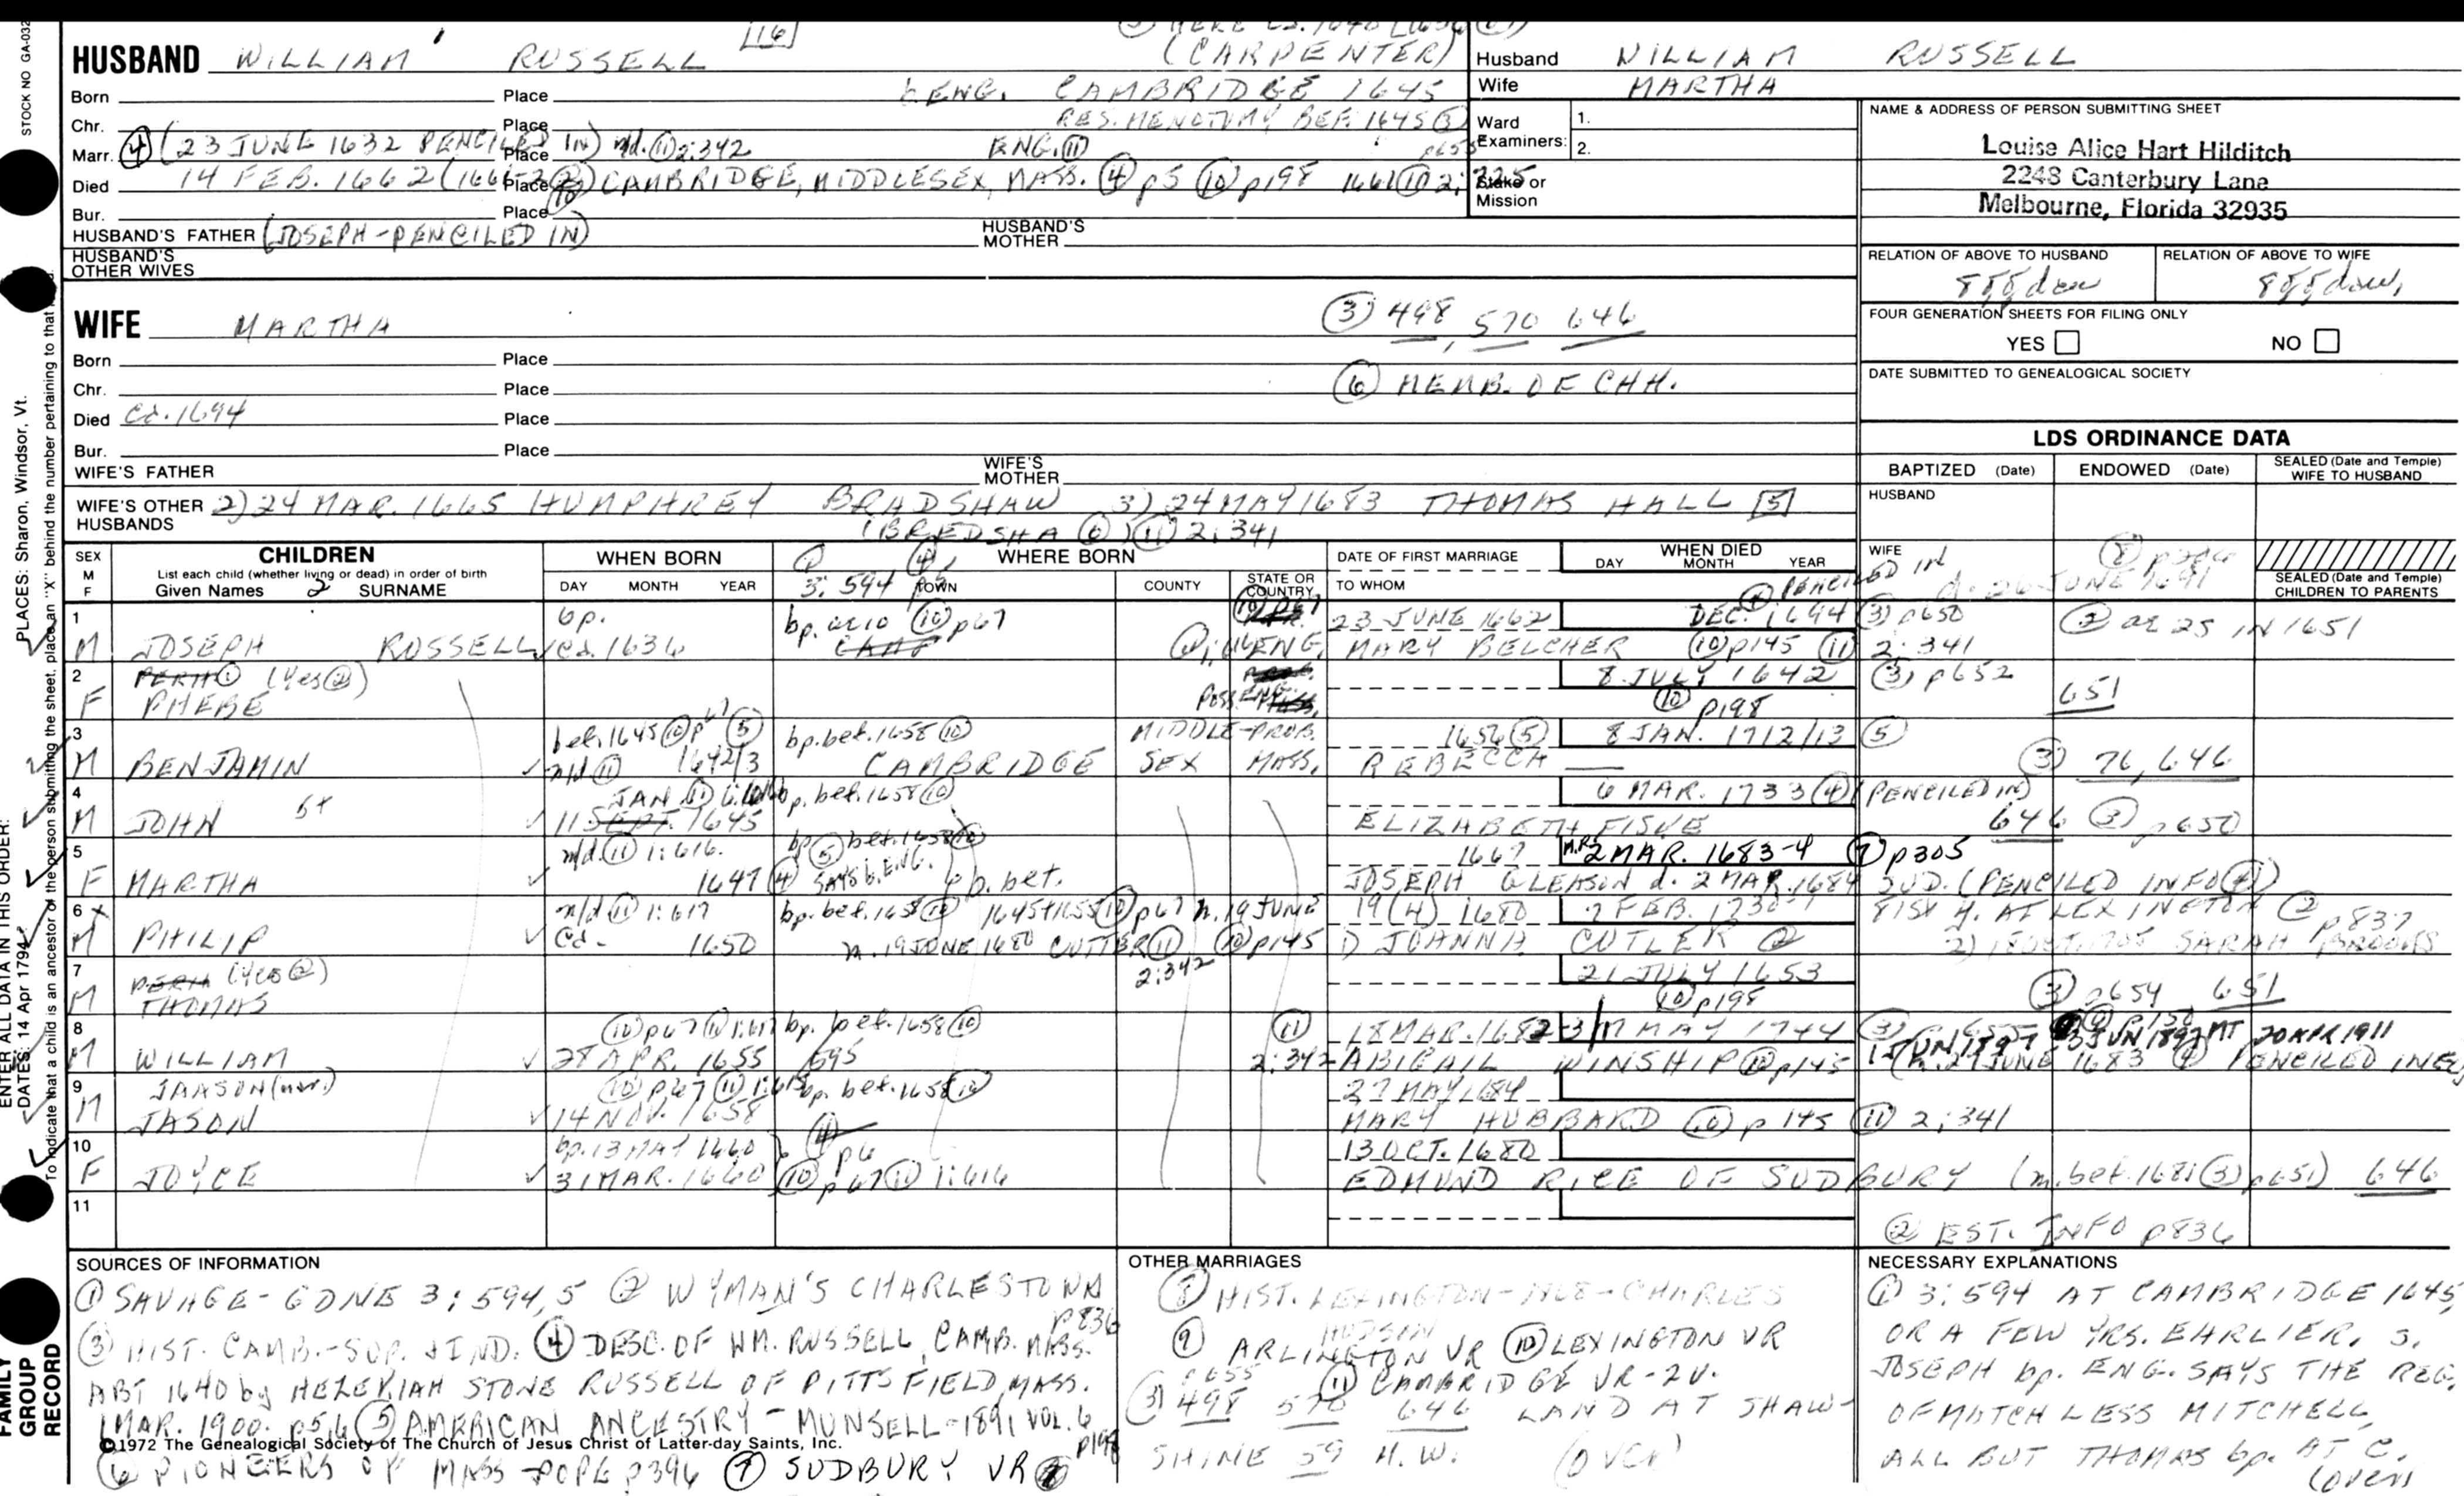 STOCK NO GA-032
HUSBAND WILLIAM RUSSELL [16]
(CARPENTER)
Born Place ENG. CAMBRIDGE 1645
Chr. Place RES. MENOTUMY BEF. 1645 (3)
Marr. (4) (23 JUNE 1632 PENCILED IN) Place n/d. (11) 2:342 ENG. (11)
Died 14 FEB. 1662 Place CAMBRIDGE, MIDDLESEX, MASS. (4) p5 (10) p198 1661 (10) 2:
Bur. Place
HUSBAND'S FATHER (JOSEPH-PENCILED IN) HUSBAND'S MOTHER
HUSBAND'S OTHER WIVES
Husband WILLIAM RUSSELL
Wife MARTHA
Ward Examiners: 1.
2.
Stake or Mission
NAME & ADDRESS OF PERSON SUBMITTING SHEET
Louise Alice Hart Hilditch
2248 Canterbury Lane
Melbourne, Florida 32935
RELATION OF ABOVE TO HUSBAND RELATION OF ABOVE TO WIFE
FOUR GENERATION SHEETS FOR FILING ONLY
YES NO
DATE SUBMITTED TO GENEALOGICAL SOCIETY
WIFE MARTHA (3) 498, 570 646
Born Place
Chr. Place (6) MEMB. OF CHH.
Died ca. 1694 Place
Bur. Place
WIFE'S FATHER WIFE'S MOTHER
WIFE'S OTHER HUSBANDS 2) 24 MAR. 1665 HUMPHREY BRADSHAW 3) 24 MAY 1683 THOMAS HALL [5]
(BREDSHA (6)) (11) 2:341
LDS ORDINANCE DATA
BAPTIZED (Date) ENDOWED (Date) SEALED (Date and Temple) WIFE TO HUSBAND
HUSBAND
WIFE
SEALED (Date and Temple) CHILDREN TO PARENTS
SEX M F
CHILDREN
List each child (whether living or dead) in order of birth
Given Names SURNAME
WHEN BORN
DAY MONTH YEAR
WHERE BORN
3:594 TOWN COUNTY STATE OR COUNTRY
DATE OF FIRST MARRIAGE
TO WHOM
WHEN DIED
DAY MONTH YEAR
PENCILED IN d. 26 JUNE 1691
1 bp. bp. (10) p67 23 JUNE 1662 DEC. 1694 (3) p650
M JOSEPH RUSSELL ca. 1636 ENG. MARY BELCHER (10) p145 (11) 2:341 (2) ae 25 IN 1651
2 (Yes (2)) 8 JULY 1642 (3) p652
F PHEBE POSS. ENG. (10) p198 651
3 bef. 1645 (10) p67 (5) bp. bef. 1658 (10) MIDDLE- PROB. 1656 (5) 8 JAN. 1712/13 (5)
M BENJAMIN n/d (11) 1642/3 CAMBRIDGE SEX MASS. REBECCA (3) 76, 646
4 JAN bp. bef. 1658 (10) 6 MAR. 1733 (4) (PENCILED IN)
M JOHN 11 SEPT. 1645 ELIZABETH FISKE 646 (3) p650
5 n/d. (11) 1:616. bp (5) bef. 1658 (10) 1667 2 MAR. 1683-4 (7) p305
F MARTHA 1647 (4) SAYS b. ENG. bp. bet. JOSEPH GLEASON d. 2 MAR. 1684 SUD. (PENCILED INFO (4))
6 n/d (11) 1:617 bp. bef. 1658 (10) 1645+1655 (10) p67 m. 19 JUNE 19 (4) 1680 7 FEB. AT LEXINGTON (2) p837
M PHILIP ca. 1650 m. 19 JUNE 1680 CUTTER (11) 2:342 (10) p145 1) JOANNA CUTLER (2) 2) SARAH BROOKS
7 (Yes (2)) 21 JULY 1653
M THOMAS (10) p198 (3) p654 651
8 (10) p67 (11) 1:617 bp. bef. 1658 (10) (11) 18 MAR. 1682-3 MAY 1744 (3) 20 APR 1911
M WILLIAM 28 APR. 1655 595 2:342 ABIGAIL WINSHIP (10) p145 JUNE 1683 (4) PENCILED
9 JAASON (nor.) (10) p67 (11) bp. bef. 1658 (10) 27 MAY 1684
M JASON 14 NOV. 1658 MARY HUBBARD (10) p 145 (11) 2:341
10 bp. 13 MAY 1660 p6 13 OCT. 1680
F JOYCE 31 MAR. 1660 (10) p67 (11) 1:616 EDMUND RICE OF SUDBURY (m. bef. 1681 (3) p651) 646
11
(2) EST. INFO p836
SOURCES OF INFORMATION
(1) SAVAGE-GDNE 3:594,5 (2) WYMAN'S CHARLESTOWN p836
(3) HIST. CAMB.-SUP. + IND. (4) DESC. OF WM. RUSSELL, CAMB. MASS.
ABT 1640 by HEZEKIAH STONE RUSSELL OF PITTSFIELD, MASS.
1 MAR. 1900. p5,6 (5) AMERICAN ANCESTRY-MUNSELL-1891 VOL. 6 p198
©1972 The Genealogical Society of The Church of Jesus Christ of Latter-day Saints, Inc.
(6) PIONEERS OF MASS-POPE p396 (7) SUDBURY VR
OTHER MARRIAGES
(8) HIST. LEXINGTON-1868-CHARLES HUDSON
(9) ARLINGTON VR (10) LEXINGTON VR
p655 (11) CAMBRIDGE VR-2V.
(3) 498 570 646 LAND AT SHAW-
SHINE 59 H.W. (OVER)
NECESSARY EXPLANATIONS
(1) 3:594 AT CAMBRIDGE 1645,
OR A FEW YRS. EARLIER, S.
JOSEPH bp. ENG. SAYS THE REG.
OF MATCHLESS MITCHELL,
ALL BUT THOMAS bp. AT C.
(OVER)
PLACES: Sharon, Windsor, Vt.
ENTER ALL DATA IN THIS ORDER:
DATES: 14 Apr 1794
To indicate that a child is an ancestor of the person submitting the sheet, place an "X" behind the number pertaining to that
FAMILY GROUP RECORD